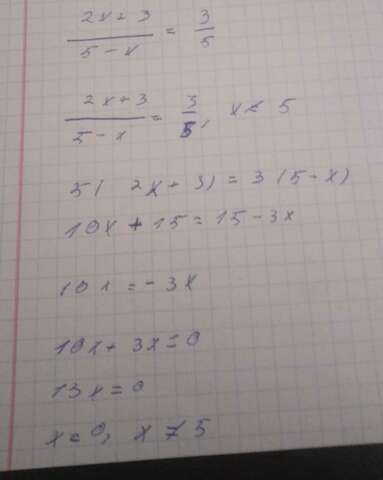 (2x+3)/(5-x) = 3/5
(2x+3)/(5-x) = 3/5, x≠5
5(2x+3) = 3(5-x)
10x+15=15-3x
10x=-3x
10x+3x=0
13x=0
x=0, x≠5